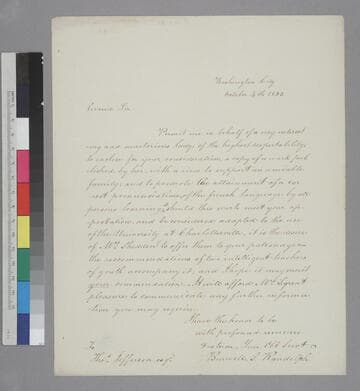 Washington City
October 4th 1823.
Revered Sir
Permit me in behalf of a very interest
ing and meritorious lady, of the highest respectability,
to enclose for your consideration a copy of a work pub
lished by her, with a view to support an amiable
family; and to promote the attainment of a cor
rect pronunciation of the french language, by all
persons learning it. Should this work meet your ap
probation, and be considered adapted to the use
of the University at Charlottesville, it is the desire
of Mrs. to offer them to your patronage
the recommendations of two intelligent teachers
of youth accompany it, and I hope it may merit
your commendation. It will afford Mrs. great
pleasure to communicate any further informa
tion you may require.
I have the honor to be
with profound
Your Obt Servt
Burwell S. Randolph
To
Thos. Jefferson esqr.